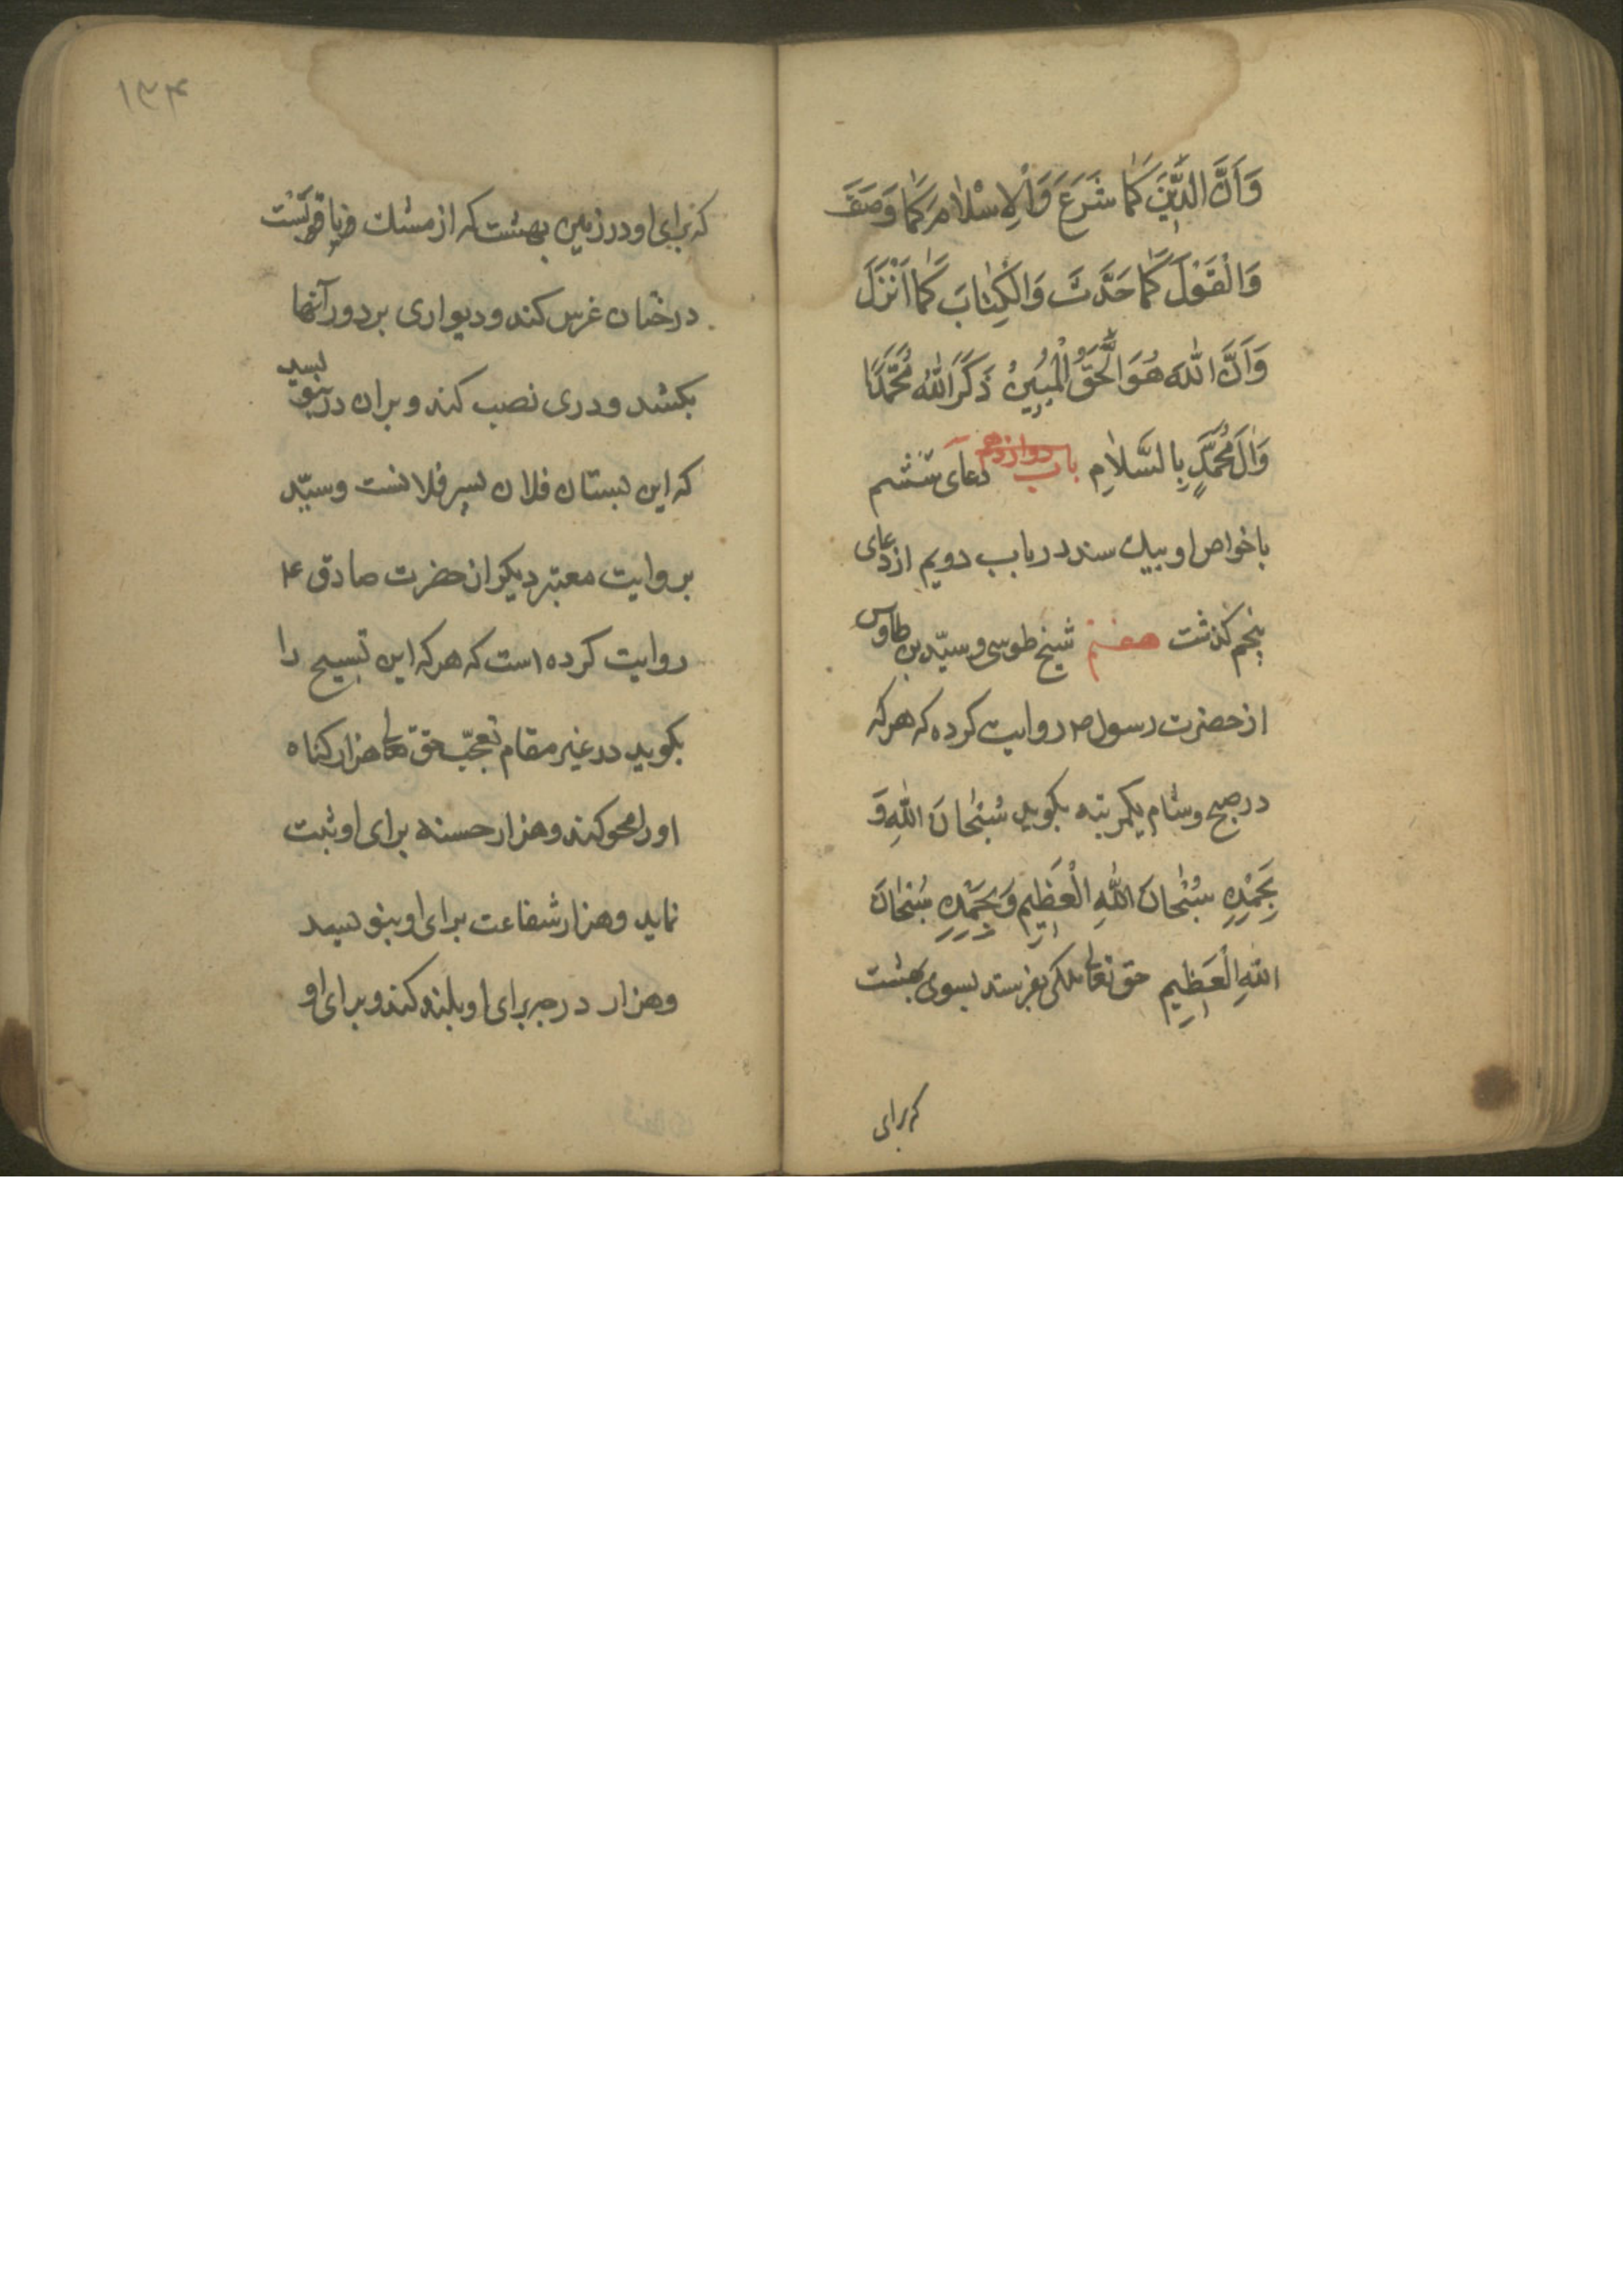 وَاَنَّ الدّينَ كَمٰا شَرَعَ وَالْاِسْلٰامَ كَمٰا وَصَفَ
وَالْقَوْلَ كَمٰا حَدَّثَ وَالْكِتٰابَ كَمٰا اَنْزَلَ
وَاَنَّ اللّٰهَ هُوَ الْحَقُّ الْمُبينُ ذَكَرَ اللّٰهُ مُحَمَّدًا
وَاٰلَ مُحَمَّدٍ بِالسَّلاٰمِ باب دوازدهم دعای ششم
با خواص او بیك سند در باب دویم از دعای
پنجم كذشت هفتم شیخ طوسی و سیّد بن طاوس
از حضرت رسول ص روایت كرده كه هر كه
در صبح و شام یكمرتبه بكوید سُبْحٰانَ اللّٰهِ وَ
بِحَمْدِهِ سُبْحٰانَ اللّٰهِ الْعَظِيمِ وَبِحَمْدِهِ سُبْحٰانَ
اللّٰهِ الْعَظِيمِ حق تعالی ملكی بفرستد بسوی بهشت
كه برای
۱۳۴
كه برای او در زمین بهشت كه از مشك و یاقوتست
درختان غرس كند و دیواری بر دور آنها
بكشد و دری نصب كند و بران در بنویسد
كه این بستان فلان پسر فلانست و سیّد
بروایت معتبر دیكر از حضرت صادق ع
روایت كرده است كه هر كه این تسبیح را
بكوید در غیر مقام تعجّب حق تعالی هزار كناه
او را محو كند و هزار حسنه برای او ثبت
نماید و هزار شفاعت برای او بنویسد
و هزار درجه برای او بلند كند و برای او